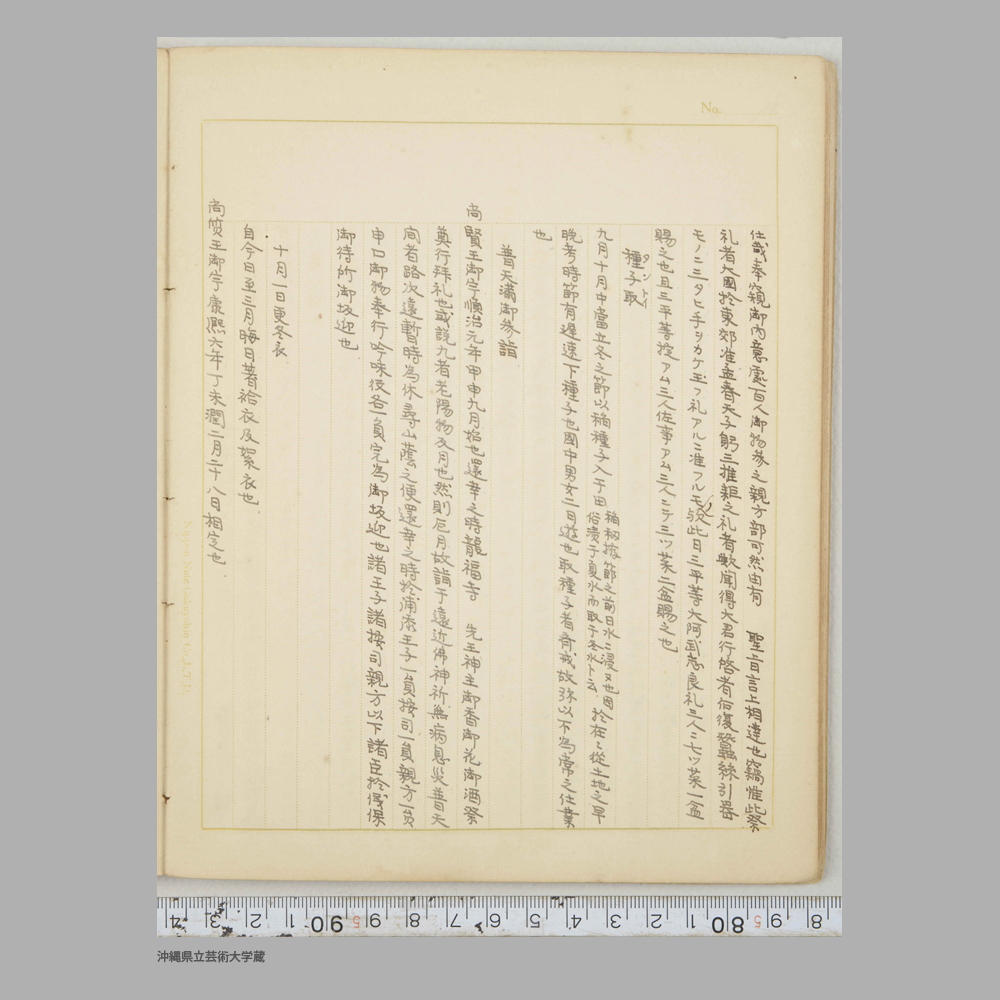 No.
仕哉奉窺御内意處百人御物参之親方部可然由有 聖旨言上相達也竊惟此祭
礼者大国於東郊准孟春天子躬三推耜之礼者歟聞得大君行啓者伯復蚕絲引器
モノニ三タヒ手ヲカケ玉フ礼アルニ准フルモノ歟此日三平等大阿武志良礼三人ニ七ツ菜一盆
賜之也且三平等掟アム三人佐事アム三人ニテ三ツ菜二盆賜之也
種子取
タントイ
九月十月中當立冬之節以稲種子入于田
稲籾按節之前日水ニ浸ス也田
俗漬于夏水而取于冬水ト云
於在々從土地之早
晩考時節有遅速下種子也國中男女二日遊也取種子者斎戒故弥以不為常之仕業
也
普天満御参詣
尚賢王御宇順治元年甲申九月始也還幸之時龍福寺 先王神主御香御花御酒祭
奠行拝礼也或説九者老陽物及月也然則厄月故詣于遠近佛神祈無病息災普天
間者路次遠暫時為休尋山蔭之便還幸之時於浦添王子一員按司一員親方一員
申口御物奉行吟味役各一員完為御坂迎也諸王子諸按司親方以下諸臣於儀保
御待所御坂迎也
十月一日更冬衣
自今日至三月晦日著袷衣及絮衣也
尚質王御宇康熙六年丁未潤二月二十八日相定也
沖縄県立芸術大学蔵